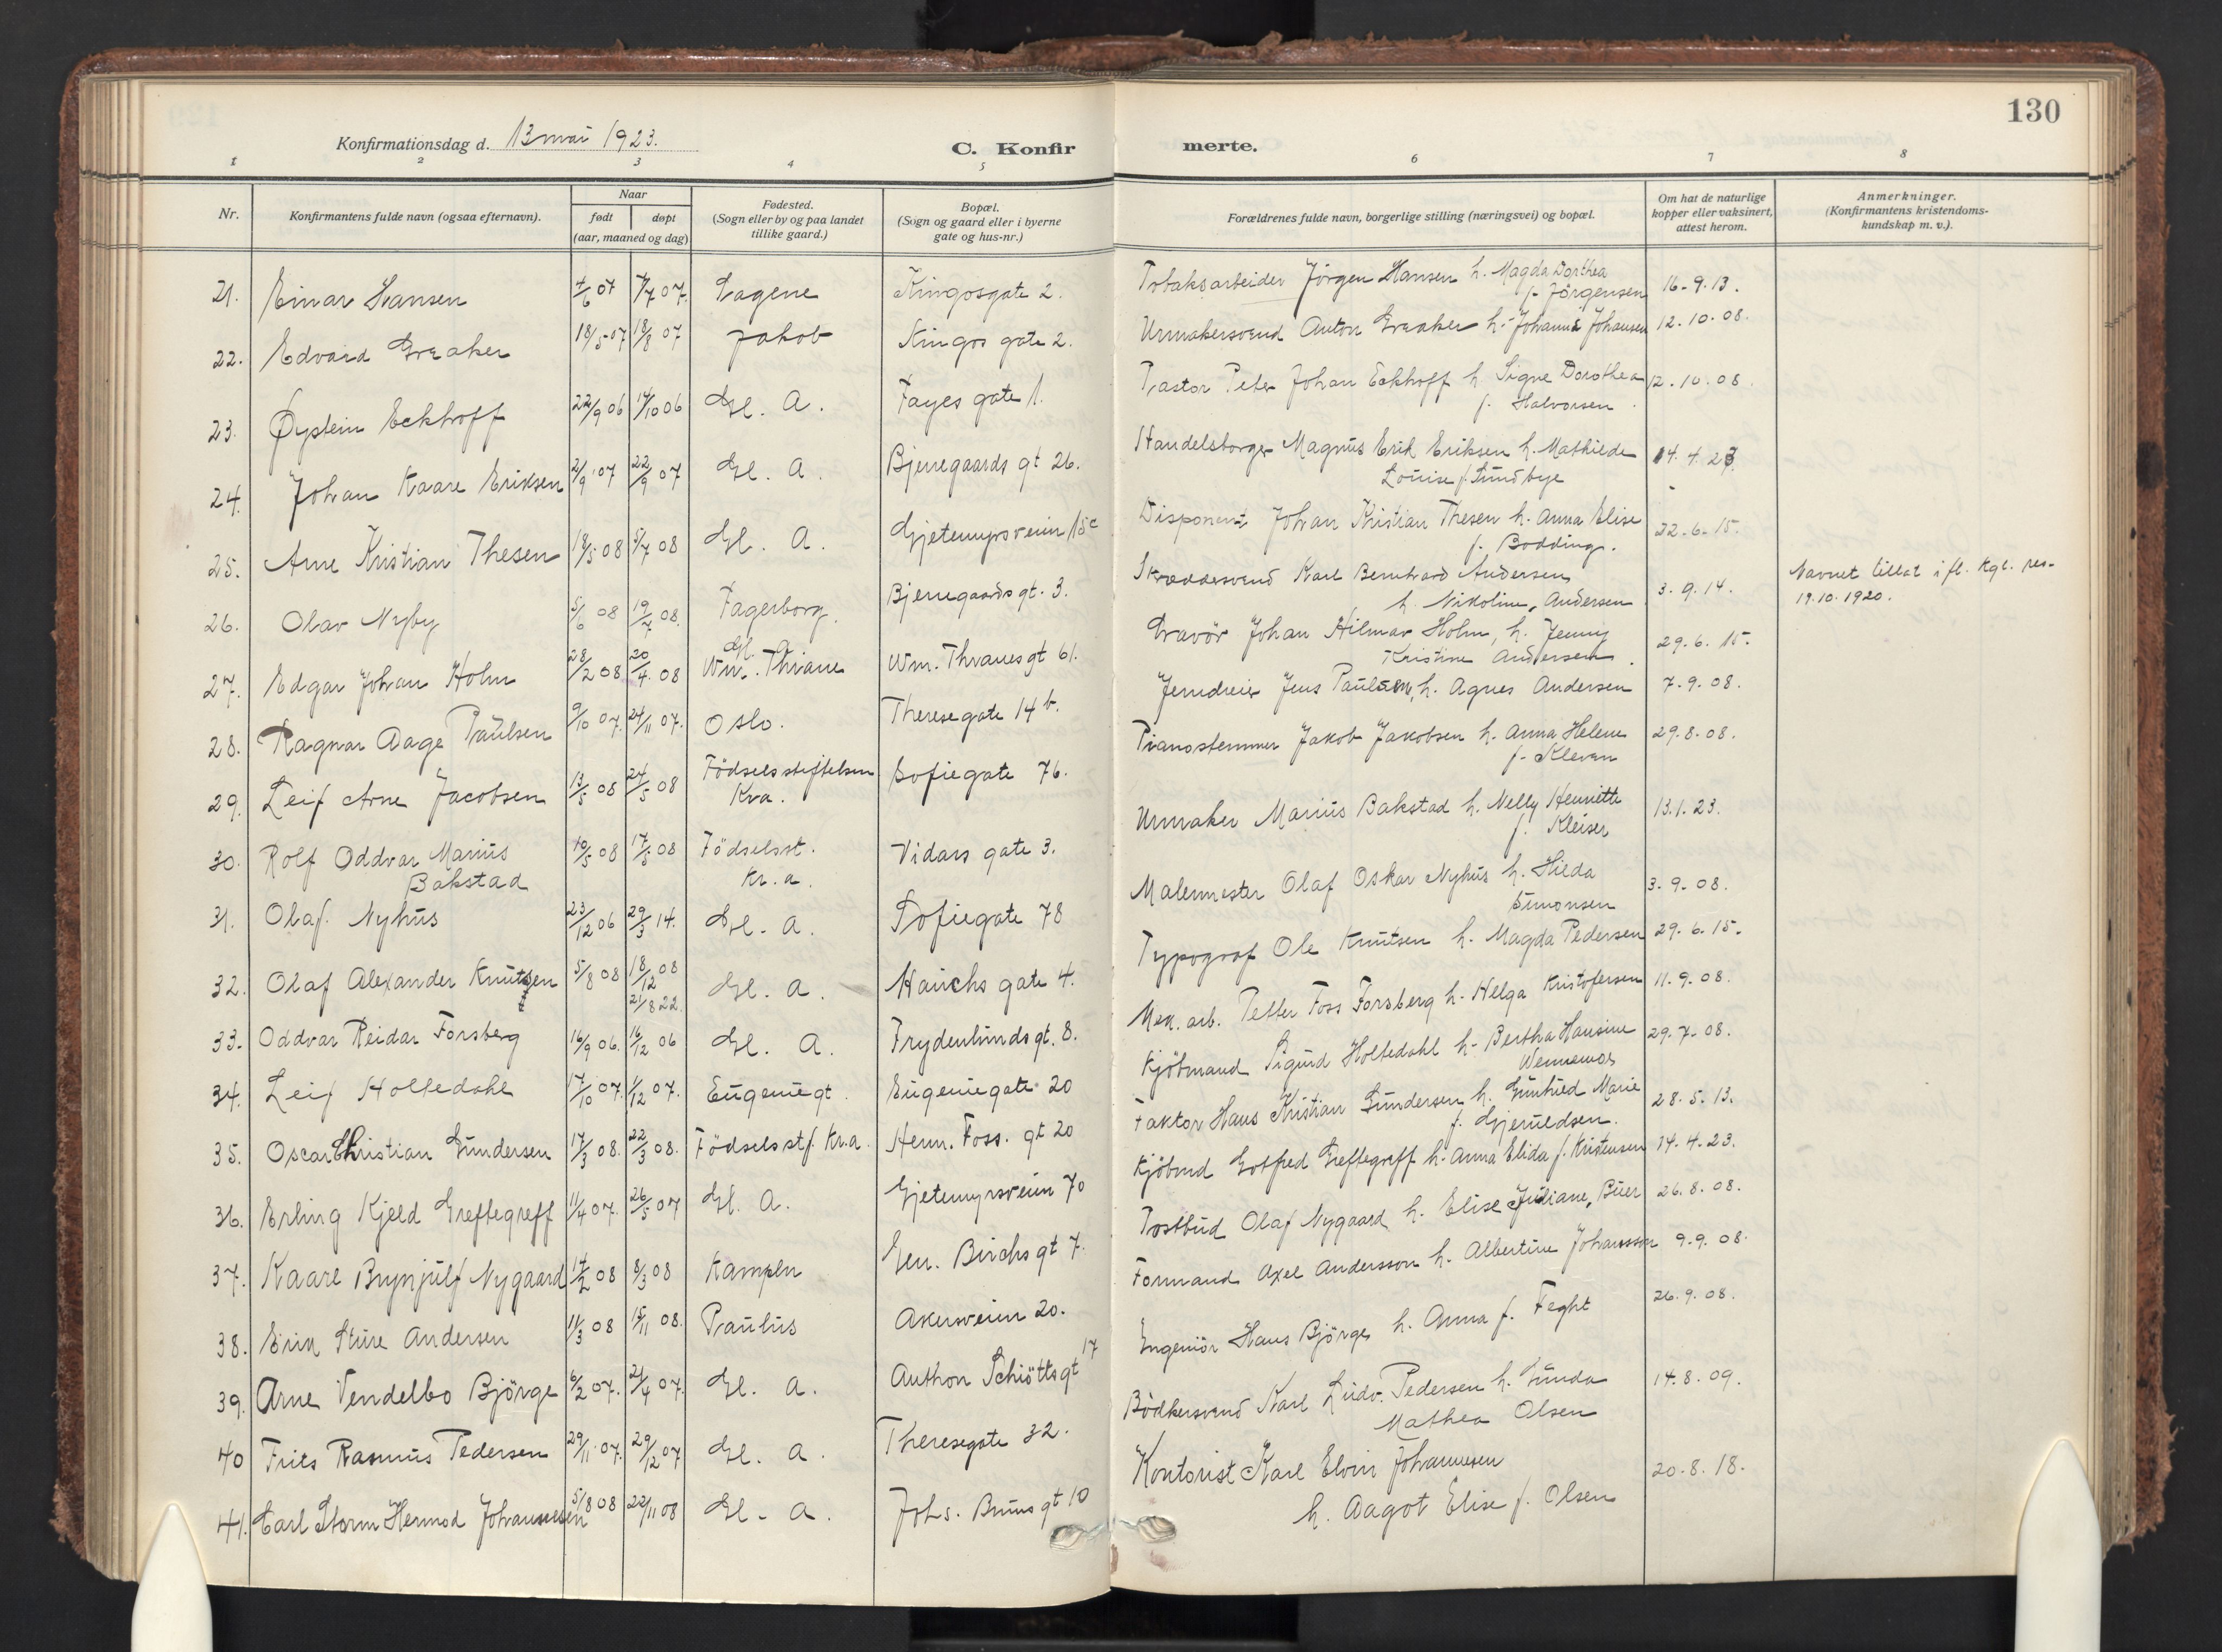 130
Konfirmationsdag d. 13 mai 1923.
C. Konfir merte.
1 2 3 4 5 6 7 8
Nr.
Konfirmantens fulde navn (ogsaa efternavn).
Naar
født døpt
(aar, maaned og dag)
Fødested.
(Sogn eller by og paa landet
tillike gaard.)
Bopæl.
(Sogn og gaard eller i byerne
gate og hus-nr.)
Forældrenes fulde navn, borgerlige stilling (næringsvei) og bopæl.
Om hat de naturlige
kopper eller vaksinert,
attest herom.
Anmerkninger.
(Konfirmantens kristendoms-
kundskap m. v.).
21. Einar Hansen 4/6 07 7/7 07. Sagene Kingosgate 2. Tobaksarbeider Jörgen Hansen h. Magda Dorthea
f. Jörgensen 16-9.13.
22. Edvard Greaker 18/5 07 18/8 07 Jakob Kingos gate 2. Urmakersvend Anton Greaker h. Johanne Johansen 12.10.08.
23. Øystein Eckhoff 22/9 06 14/10 06 Gl. A. Fayes gate 1. Pastor Peter Johan Eckhoff h. Signe Dorothea
f. Halvorsen 12.10.08.
24. Johan Kaare Eriksen 2/9 07 22/9 07 Gl. A. Bjerregaards gt 26. Handelsborger Magnus Erik Eriksen h. Mathilde
Louise f. Lundbye 14.4.23.
25. Arne Kristian Thesen 18/5 08 5/7 08 Gl. A. Gjetemyrsveien 15c Disponent Johan Kristian Thesen h. Anna Elise
f. Bodding. 22-6-15.
26. Olav Nyby 5/6 08 19/7 08. Fagerborg. Bjerregaards gt. 3. Skræddersvend Karl Bernhard Andersen
h. Nikoline, Andersen 3.9.14. Navnet tillat ifl. kgl. res.
19.10.1920.
27. Edgar Johan Holm 28/2 08 20/4 08 Gl. A.
Wm. Thrane Wm. Thranes gt 61. Gravör Johan Hilmar Holm, h. Jenny
Kristine Andersen. 29.6.15.
28. Ragnar Aage Paulsen 9/10 07. 24/11 07. Oslo. Therese gate 14 b. Jerndreier Jens Paulsen, h. Agnes Andersen 7.9.08.
29. Leif Arne Jacobsen 13/5 08 24/5 08 Födselsstiftelsen
Kra. Sofiegate 76. Pianostemmer Jakob Jakobsen h. Anna Helene
f. Kleven 29.8.08.
30. Rolf Oddvar Marius
Bakstad 10/5 08 17/5 08 Födselsst.
Kr.a. Vidars gate 3. Urmaker Marius Bakstad h. Nelly Henriette
f. Kleiser 13.1.23.
31. Olaf Nyhus 23/12 06 29/3 14. Gl. A. Sofiegate 78 Malermester Olaf Oskar Nyhus h. Hilda
Simonsen 3.9.08.
32. Olaf Alexander Knutsen 5/8 08 18/12 08
21/8 22. Gl. A. Hauchs gate 4. Typograf Ole Knutsen h. Magda Pedersen 29.6.15.
33. Oddvar Reidar Forsberg 16/9 06. 16/12 06 Gl. A. Frydenlunds gt. 8. Mek. arb. Petter Foss Forsberg h. Helga Kristofersen 11.9.08.
34. Leif Holtedahl 17/10 07. 1/12 07. Eugenie gt. Eugeniegate 20 Kjöbmand Sigurd Holtedahl h. Bertha Hansine
29.7.08.
35. Oscar Christian Gundersen 17/3 08. 22/3 08. Födselsstf. Kr.a. Herm. Foss. gt 20 Faktor Hans Kristian Gundersen h. Gunhild Marie
f. Gjeruldsen. 28.5.13.
36. Erling Kjeld Greftegreff 11/4 07. 26/5 07 Gl. A. Gjetemyrsveien 70 Kjöbmd Gotfred Greftegreff h. Anna Elida f. Kristensen 14.4.23.
37. Kaare Brynjulf Nygaard 14/2 08 8/3 08 Kampen Gen. Birchs gt 7. Postbud Olaf Nygaard h. Elise Juliane, Buer 26.8.08.
38. Erik Sture Andersen 11/3 08 15/11 08. Paulus Akersveien 20. Formand Axel Andersson h. Albertine Johansson 9.9.08.
39. Arne Vendelbo Björge 6/2 07. 21/4 07. Gl. A. Anthon Schiötts gt 17 Ingeniör Hans Björge h. Anna f. Feght 26.9.08.
40 Frits Rasmus Pedersen 29/11 07. 29/12 07 Gl. A. Theresegate 32. Bödkersvend Karl Ludv. Pedersen h. Gunda
Mathea Olsen 14.8.09.
41. Carl Storm Hermod Johannesen 5/8 08 22/11 08 Gl. A. Johs. Bruns gt 10 Kontorist Karl Elvin Johannesen
h. Aagot Elise f. Olsen 20.8.18.